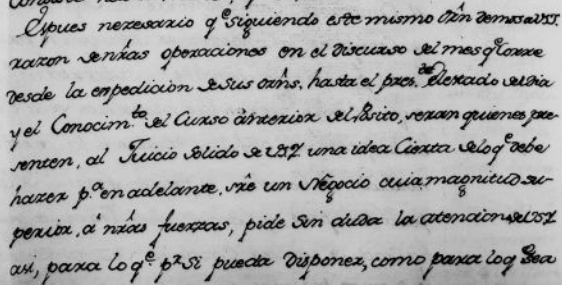 Es pues nezesario q.e siguiendo este mismo orn demos a VSS.
razon de nrãs operaciones en el discurso del mes q.e corre
desde la expedicion de sus orns. hasta el pres.te El estado del dia
y el Conocim.to del Curso anterior del Posito, seran quienes pre-
senten, al Juicio solido de VSS una idea Cierta de lo q.e debe
hazer p.a en adelante, sre un Negocio cuia magnitud su-
perior, a nrãs fuerzas, pide sin duda la atencion de VSS
asi, para lo q.e p.r Si pueda disponer, como para lo q.e sea